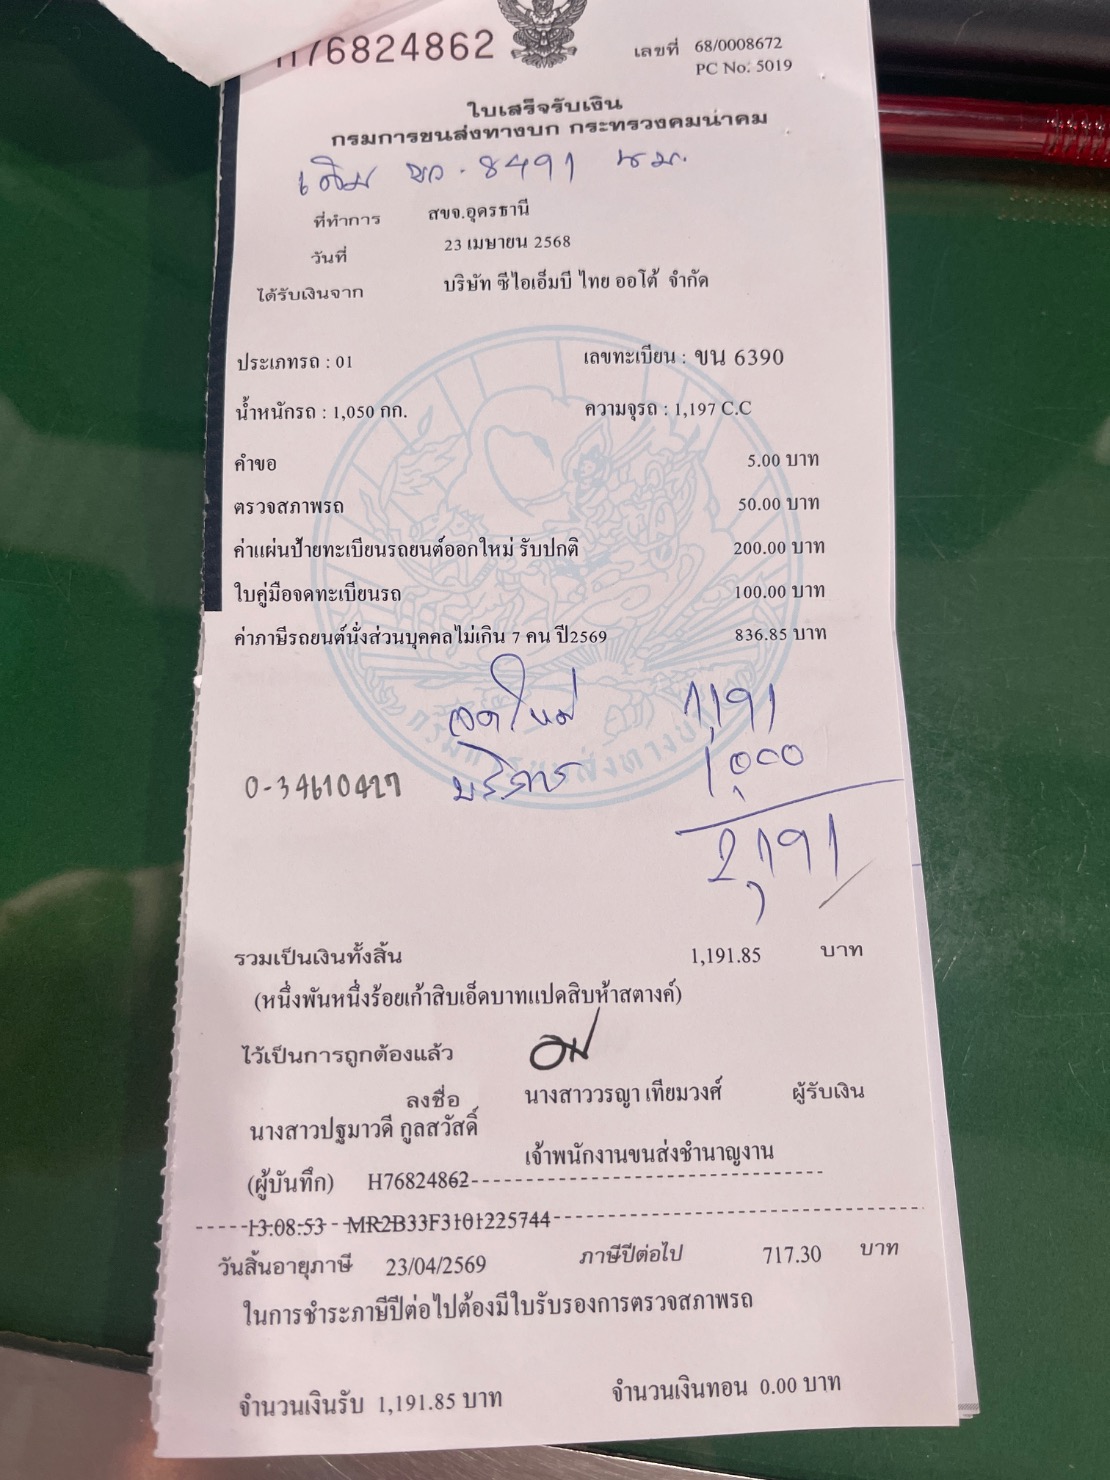 H76824862
เลขที่ 68/0008672
PC No. 5019
ใบเสร็จรับเงิน
กรมการขนส่งทางบก กระทรวงคมนาคม
เดิม ขว. 8491 นม.
ที่ทำการ สขจ.อุดรธานี
วันที่ 23 เมษายน 2568
ได้รับเงินจาก บริษัท ซีไอเอ็มบี ไทย ออโต้ จำกัด
ประเภทรถ : 01 เลขทะเบียน : ขน 6390
น้ำหนักรถ : 1,050 กก. ความจุรถ : 1,197 C.C
คำขอ 5.00 บาท
ตรวจสภาพรถ 50.00 บาท
ค่าแผ่นป้ายทะเบียนรถยนต์ออกใหม่ รับปกติ 200.00 บาท
ใบคู่มือจดทะเบียนรถ 100.00 บาท
ค่าภาษีรถยนต์นั่งส่วนบุคคลไม่เกิน 7 คน ปี2569 836.85 บาท
จดใหม่ 1,191
0-34610427 บริการ 1,000
2,191
กรมการขนส่งทางบก
รวมเป็นเงินทั้งสิ้น 1,191.85 บาท
(หนึ่งพันหนึ่งร้อยเก้าสิบเอ็ดบาทแปดสิบห้าสตางค์)
ไว้เป็นการถูกต้องแล้ว
ลงชื่อ นางสาววรญา เทียมวงศ์ ผู้รับเงิน
นางสาวปฐมาวดี กูลสวัสดิ์
เจ้าพนักงานขนส่งชำนาญงาน
(ผู้บันทึก) H76824862
13:08:53 MR2B33F3101225744
วันสิ้นอายุภาษี 23/04/2569 ภาษีปีต่อไป 717.30 บาท
ในการชำระภาษีปีต่อไปต้องมีใบรับรองการตรวจสภาพรถ
จำนวนเงินรับ 1,191.85 บาท จำนวนเงินทอน 0.00 บาท